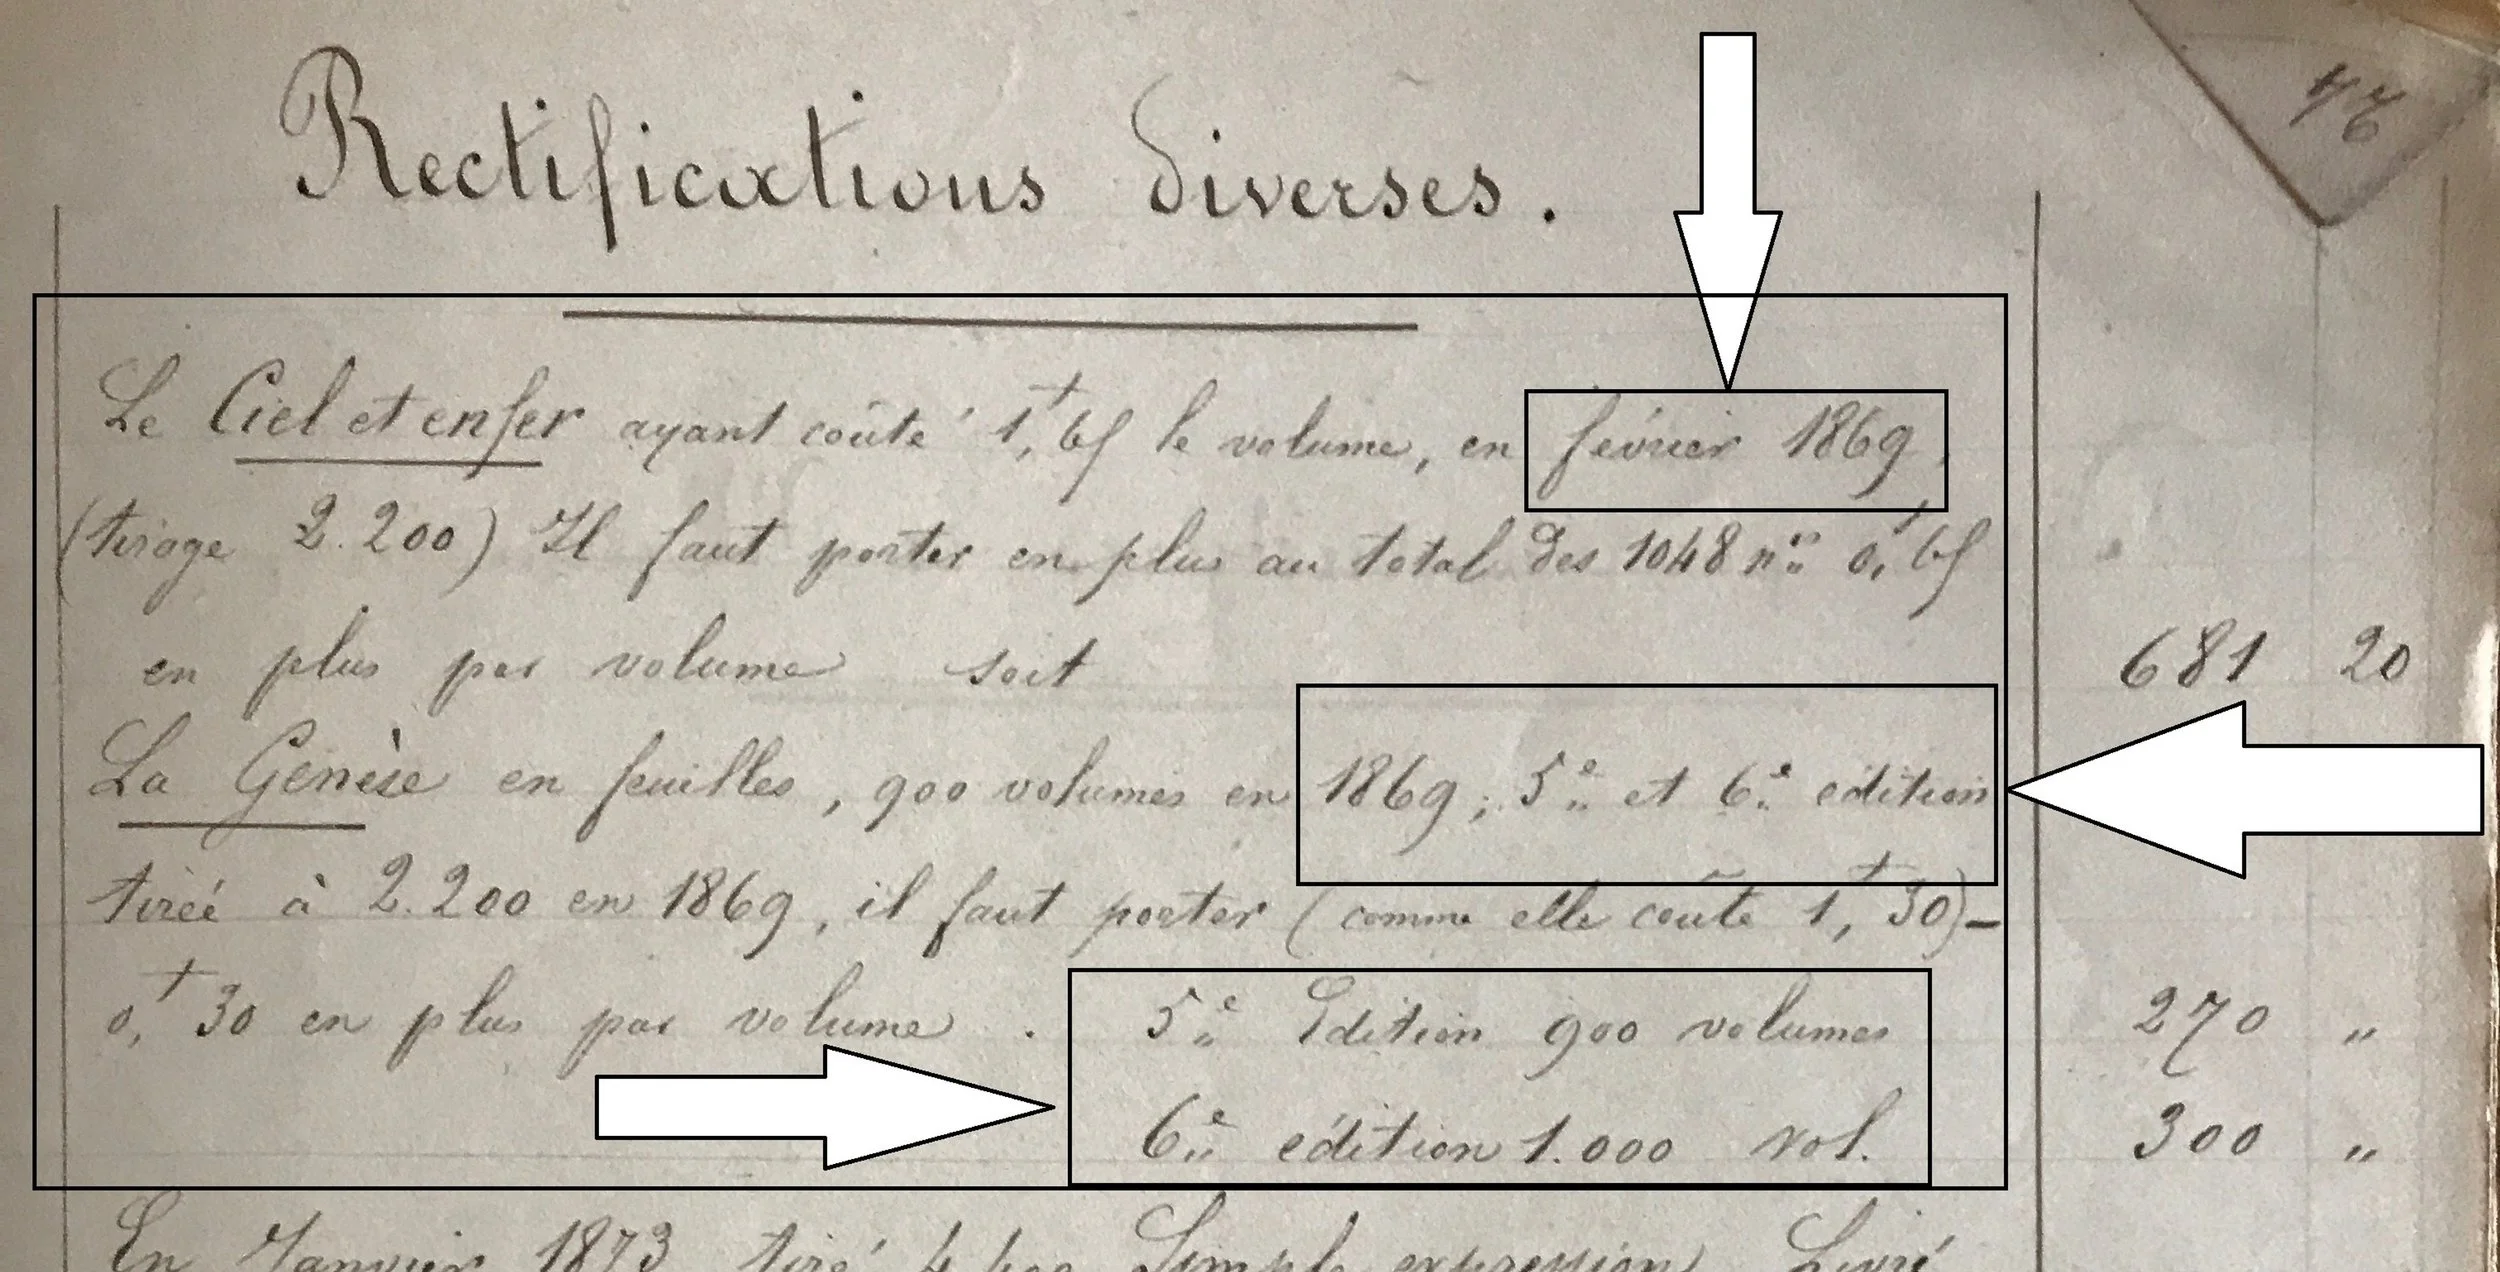 Rectifications diverses.
Le Ciel et enfer ayant coûté 1,f 65 le volume, en février 1869,
(tirage 2.200) Il faut porter en plus au total des 1048 nos 0,f 65
en plus par volume soit 681 20
La Genèse en feuilles, 900 volumes en 1869; 5e et 6e edition
tirée à 2.200 en 1869, il faut porter (comme elle coûte 1,f 30)-
0,f 30 en plus par volume . 5e Edition 900 volumes 270 "
6e édition 1.000 vol. 300 "
En Janvier 1873 tiré Simple expression Livré